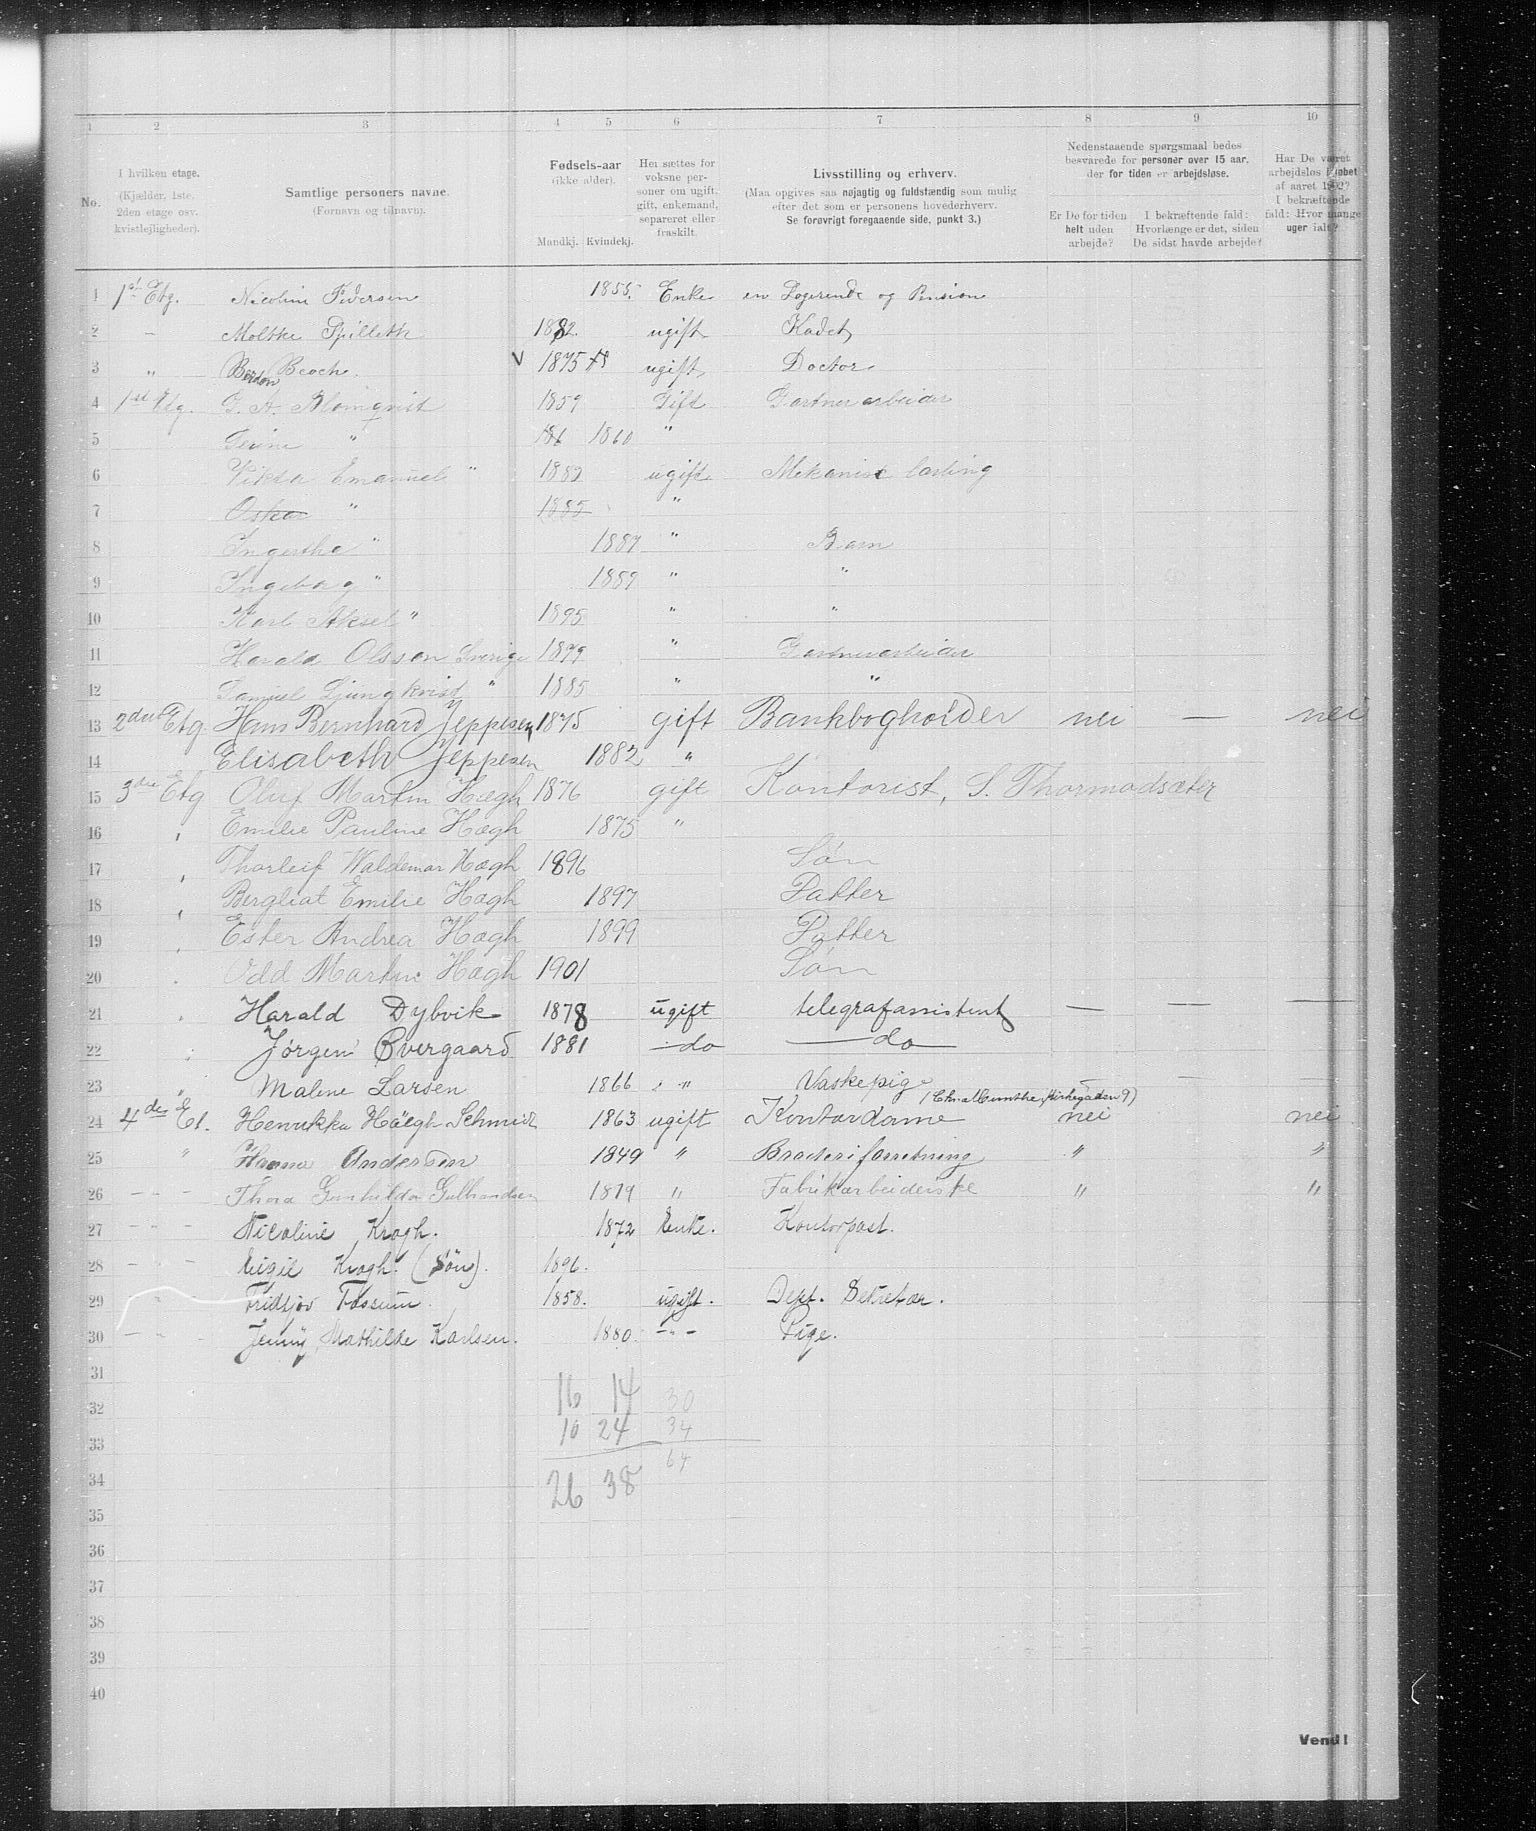 1 2 3 4 5 6 7 8 9 10
No.
I hvilken etage. (Kjælder, 1ste, 2den etage osv. kvistlejligheder).
Samtlige personers navne. (Fornavn og tilnavn).
Fødsels-aar (ikke alder). Mandkj. Kvindekj.
Her sættes for voksne personer om ugift, gift, enkemand, separeret eller fraskilt.
Livsstilling og erhverv. (Maa opgives saa nøjagtig og fuldstændig som mulig efter det som er personens hovederhverv. Se forøvrigt foregaaende side, punkt 3.)
Nedenstaaende spørgsmaal bedes besvarede for personer over 15 aar, der for tiden er arbejdsløse.
Er De for tiden helt uden arbejde?
I bekræftende fald: Hvorlænge er det, siden De sidst havde arbejde?
Har De været arbejdsløs i løbet af aaret 1902? I bekræftende fald: Hvor mange uger ialt?
1 1st Etg. Nicoline Pedersen 1855. Enke en Logerende og Pension
2 – Moltke 1882. ugift Kadet
3 " Broch. V 1875 ugift Doctor
4 1st Etg. G. A. Blomqvist 1859 Gift Gartnerarbeider
5 " 1860 "
6 Viktor Emanuel " 1883 ugift Mekanisk lærling
7 Oskar " 1885 "
8 Ingertha " 1887 " Barn
9 Ingeborg " 1889 " "
10 Karl Aksel " 1895 " "
11 Harald Olsson Sverige 1879 " Gartnerarbeider
12 Samuel Ljungkvist " 1885 " "
13 2den Etg. Hans Bernhard Jeppesen 1875 gift Bankbogholder nei — nei
14 Elisabeth Jeppesen 1882 "
15 3die Etg Oluf Martin Høegh 1876 gift Kontorist, S. Thormodsæter
16 " Emilie Pauline Høegh 1875 "
17 " Thorleif Waldemar Høegh 1896 Søn
18 " Bergliot Emilie Høegh 1897 Datter
19 " Ester Andrea Høegh 1899 Datter
20 " Odd Martin Høegh 1901 Søn
21 " Harald Dybvik 1878 ugift telegrafassistent — — —
22 " Jørgen Øvergaard 1881 do do
23 " Malene Larsen 1866 " Vaskepige —
24 4de Et. Henrikka Höegh Schmidt 1863 ugift Kontordame (Chr. a Munthe, Kirkegaden 9) nei nei
25 " Hanna Andersen 1849 " Broderiforretning " "
26 – " – Thora Gunhilda Gulbrandsen 1879 " Fabrikarbeiderske " "
27 – " – Nicoline Krogh. 1872 Enke. Kontorpost.
28 – " – Eigil Krogh. (Sön). 1896.
29 " – Fridtjov Fossum. 1858. ugift. Dept. Sekretær.
30 – " – Jenny Mathilde Karlsen. 1880. – " – Pige.
31
32 16 14 30
33 10 24 34
64
34 26 38
35
36
37
38
39
40
Vend!